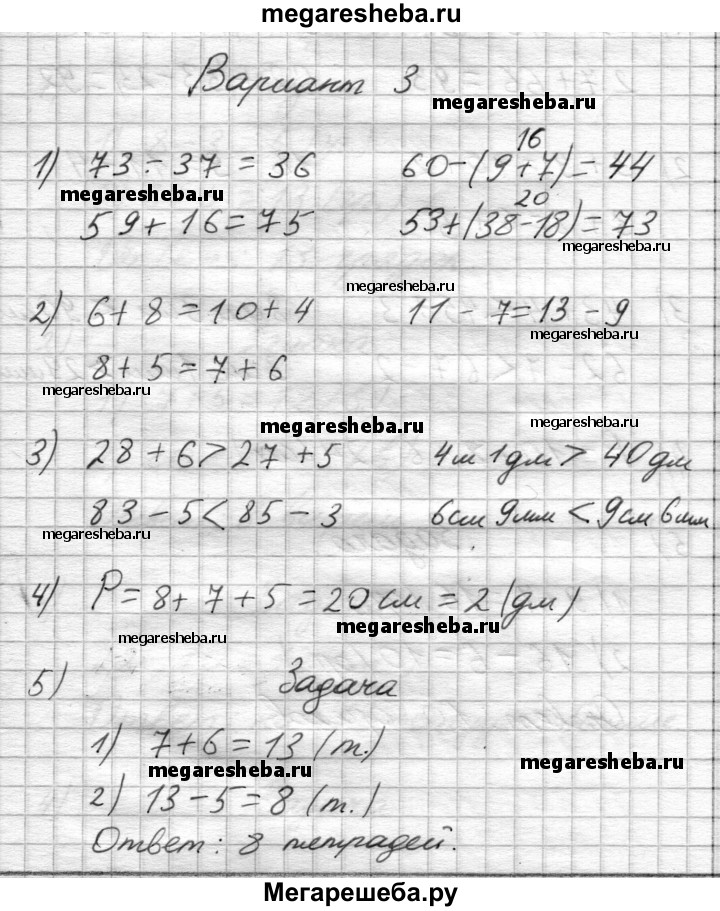 megaresheba.ru
Вариант 3
megaresheba.ru
16
1) 73 - 37 = 36 60-(9+7)=44
megaresheba.ru
20
59+16=75 53+(38-18)=73
megaresheba.ru
megaresheba.ru
2) 6+8=10+4 11-7=13-9
megaresheba.ru
8+5=7+6
megaresheba.ru
megaresheba.ru
megaresheba.ru
3) 28+6>27+5 4м 1дм > 40дм
83-5<85-3 6см 9мм < 9см 6мм
megaresheba.ru
4) P=8+7+5=20см=2(дм)
megaresheba.ru
megaresheba.ru
5) Задача
1) 7+6=13 (т.)
megaresheba.ru
megaresheba.ru
2) 13-5=8 (т.)
Ответ: 8 тетрадей.
Мегарешеба.ру